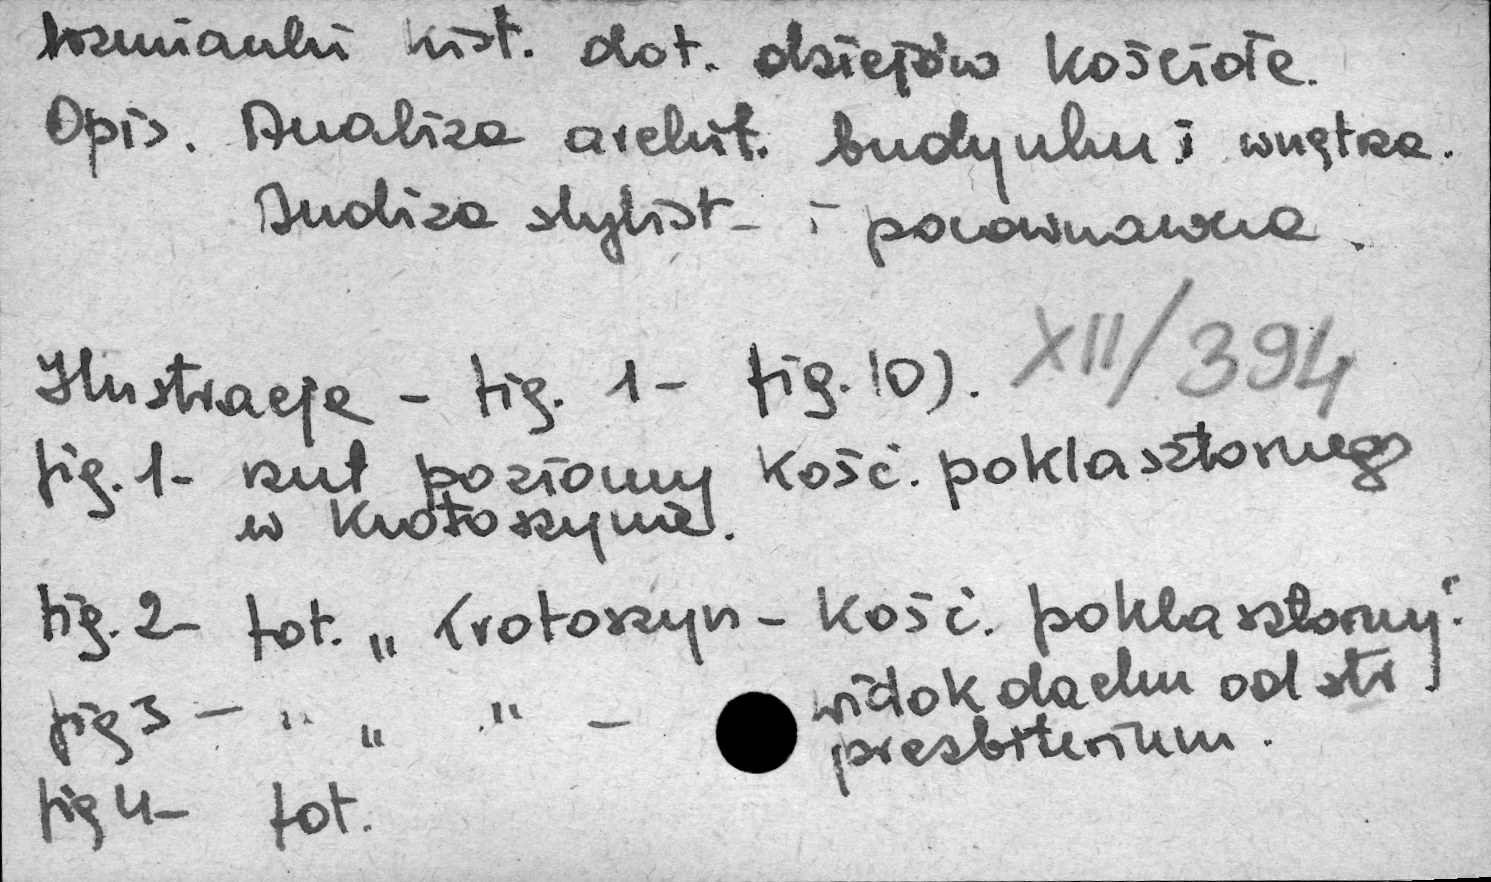 Wzmianki hist. dot. dziejów kościoła.
Opis. Analiza archit. budynku i wnętrza.
Analiza stylist- i porównawcza.
XII/394
Ilustracje - fig. 1- fig. 10).
fig. 1- rzut poziomy kość. poklasztornego
w Krotoszynie.
fig. 2- fot. „ Krotoszyn - kość. poklasztorny".
fig 3 - " „ " - widok dachu od str
prezbiterium.
fig 4- fot.